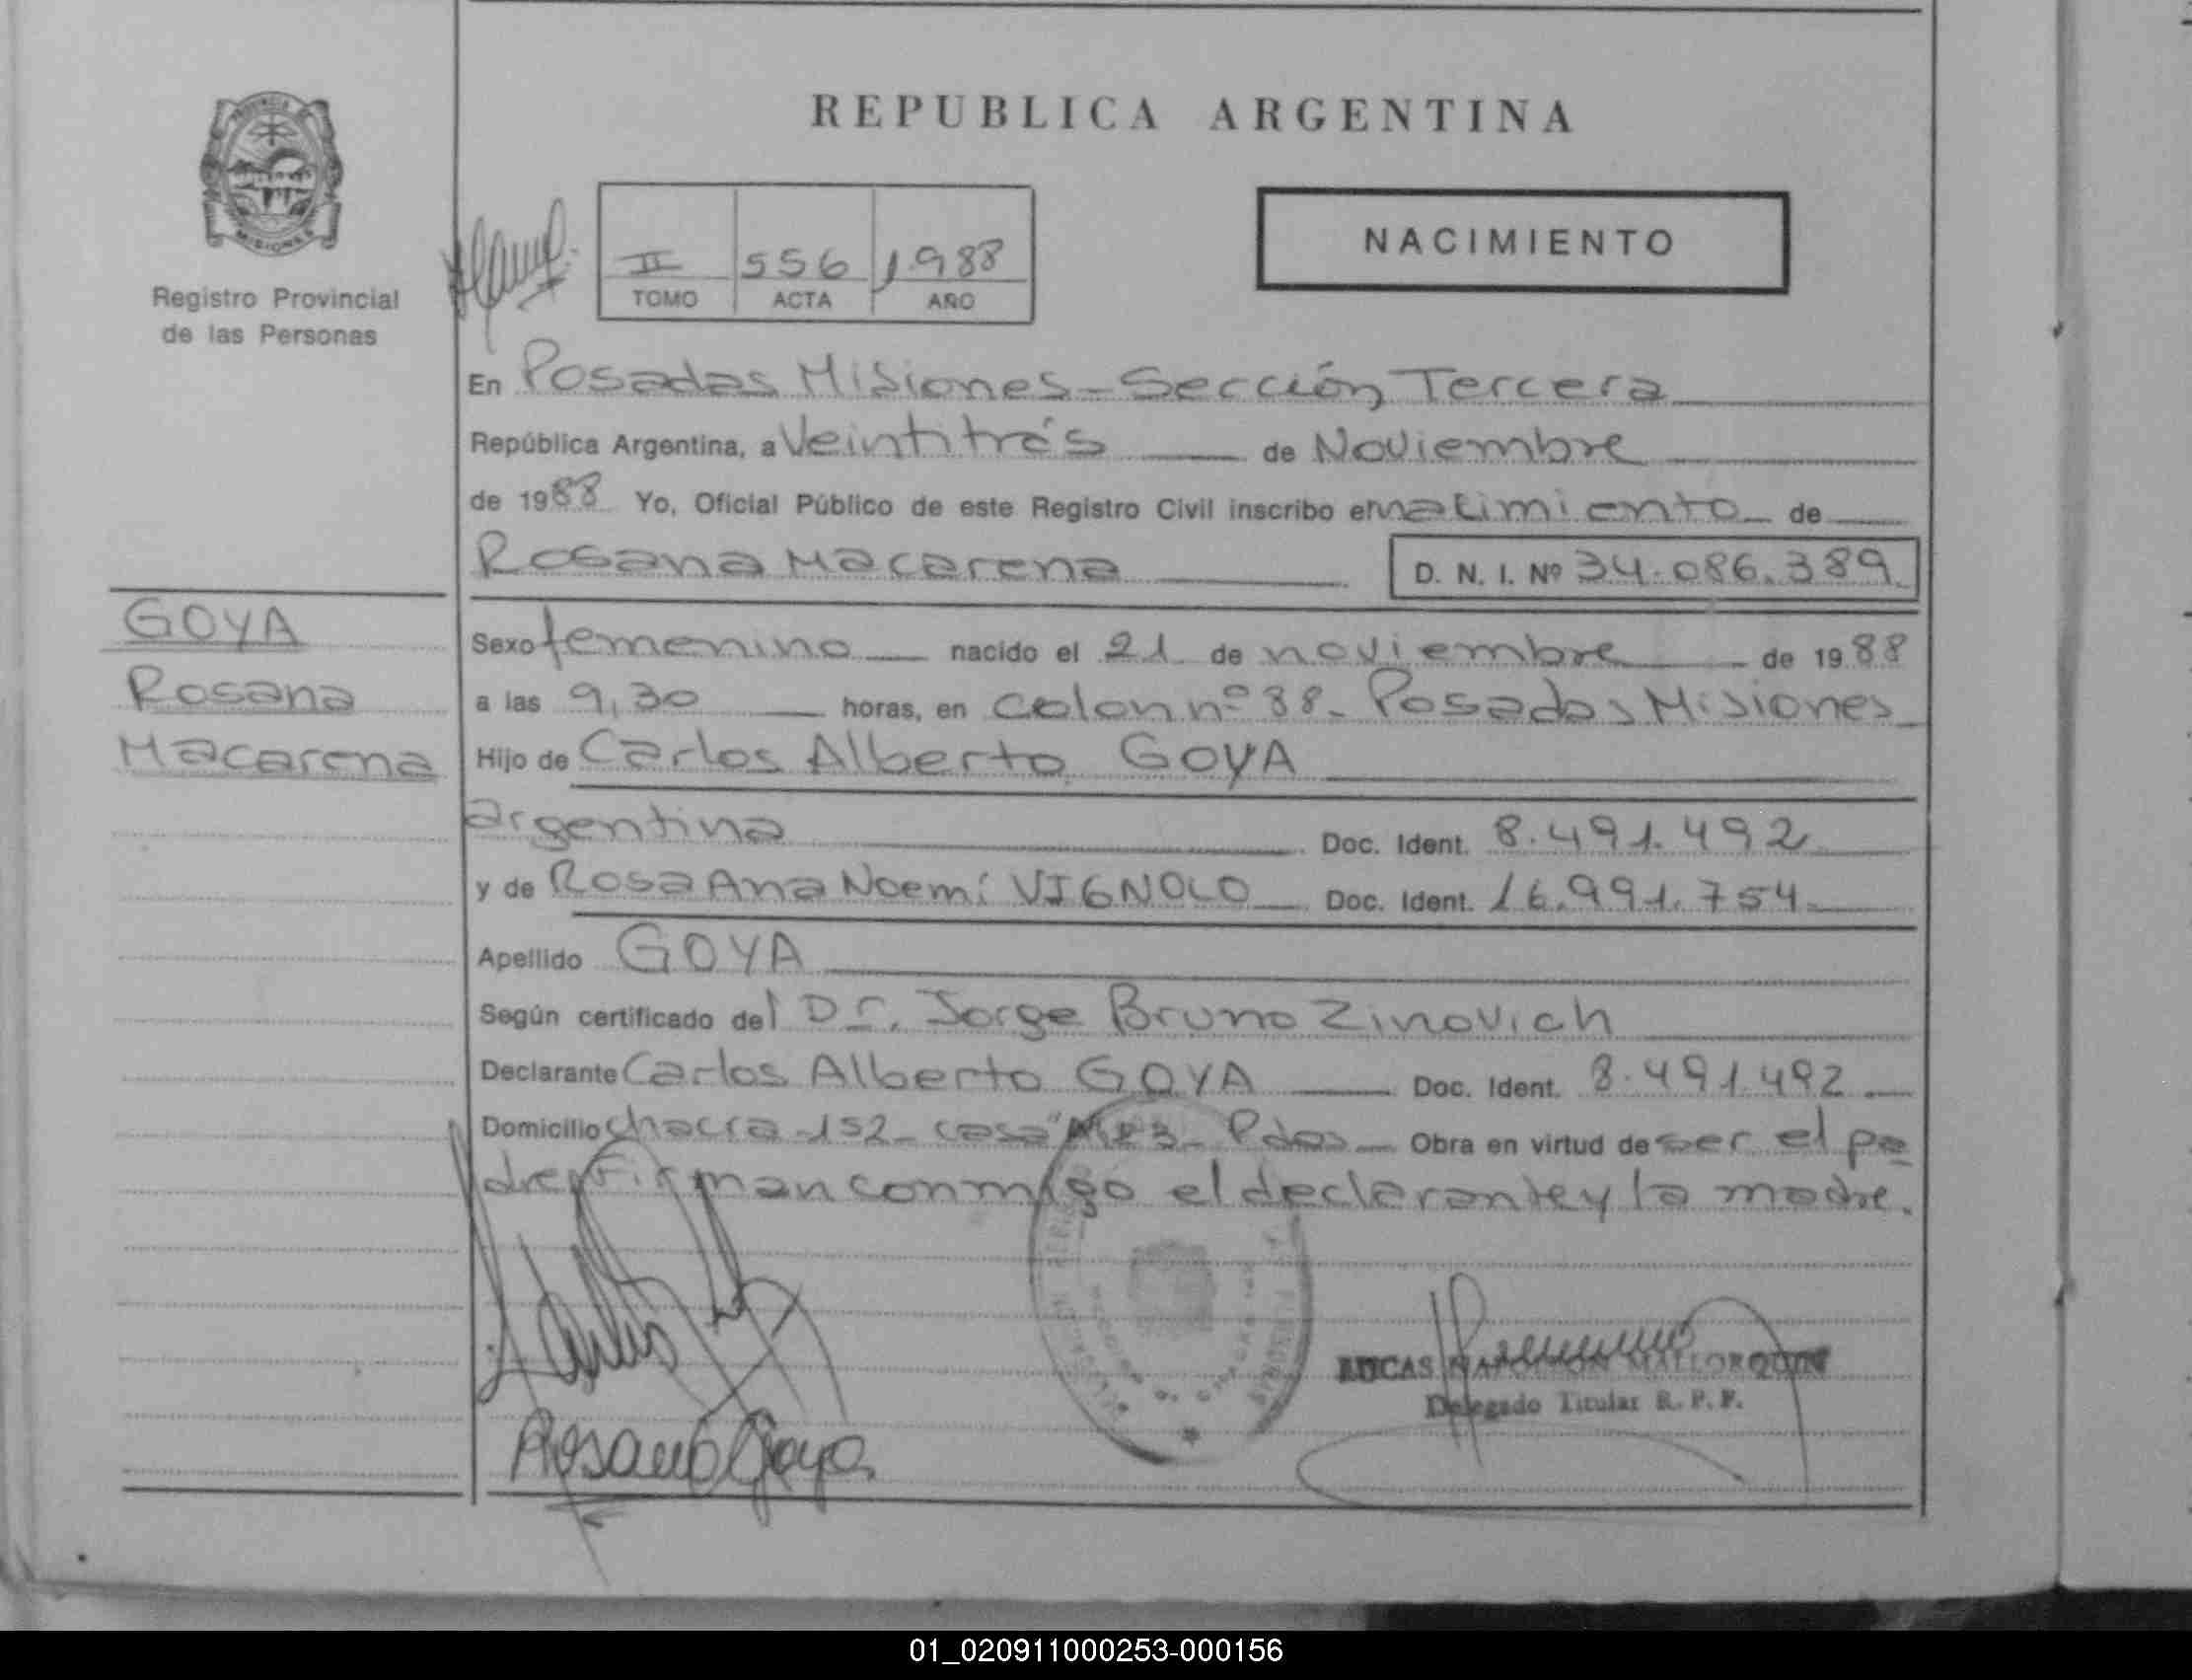 REPUBLICA ARGENTINA
NACIMIENTO
II 556 1988
TOMO ACTA AÑO
Registro Provincial
de las Personas
En Posadas Misiones - Sección Tercera
República Argentina, a Veintitrés de Noviembre
de 1988 Yo, Oficial Público de este Registro Civil inscribo el nacimiento de
Rosana Macarena D. N. I. Nº 34.086.389
GOYA
Rosana
Macarena
Sexo femenino nacido el 21 de noviembre de 1988
a las 9,30 horas, en Colon nº 88 - Posadas Misiones
Hijo de Carlos Alberto GOYA
argentina Doc. Ident. 8.491.492
y de Rosa Ana Noemí VIGNOLO Doc. Ident. 16.991.754
Apellido GOYA
Según certificado del Dr. Jorge Bruno Zinovich
Declarante Carlos Alberto GOYA Doc. Ident. 8.491.492
Domicilio chacra - 152 - casa Pdas - Obra en virtud de ser el pa
dre firman conmigo el declarante y la madre.
LUCAS NAPOLEON MALLORQUIN
Delegado Titular R. P. P.
01_020911000253-000156